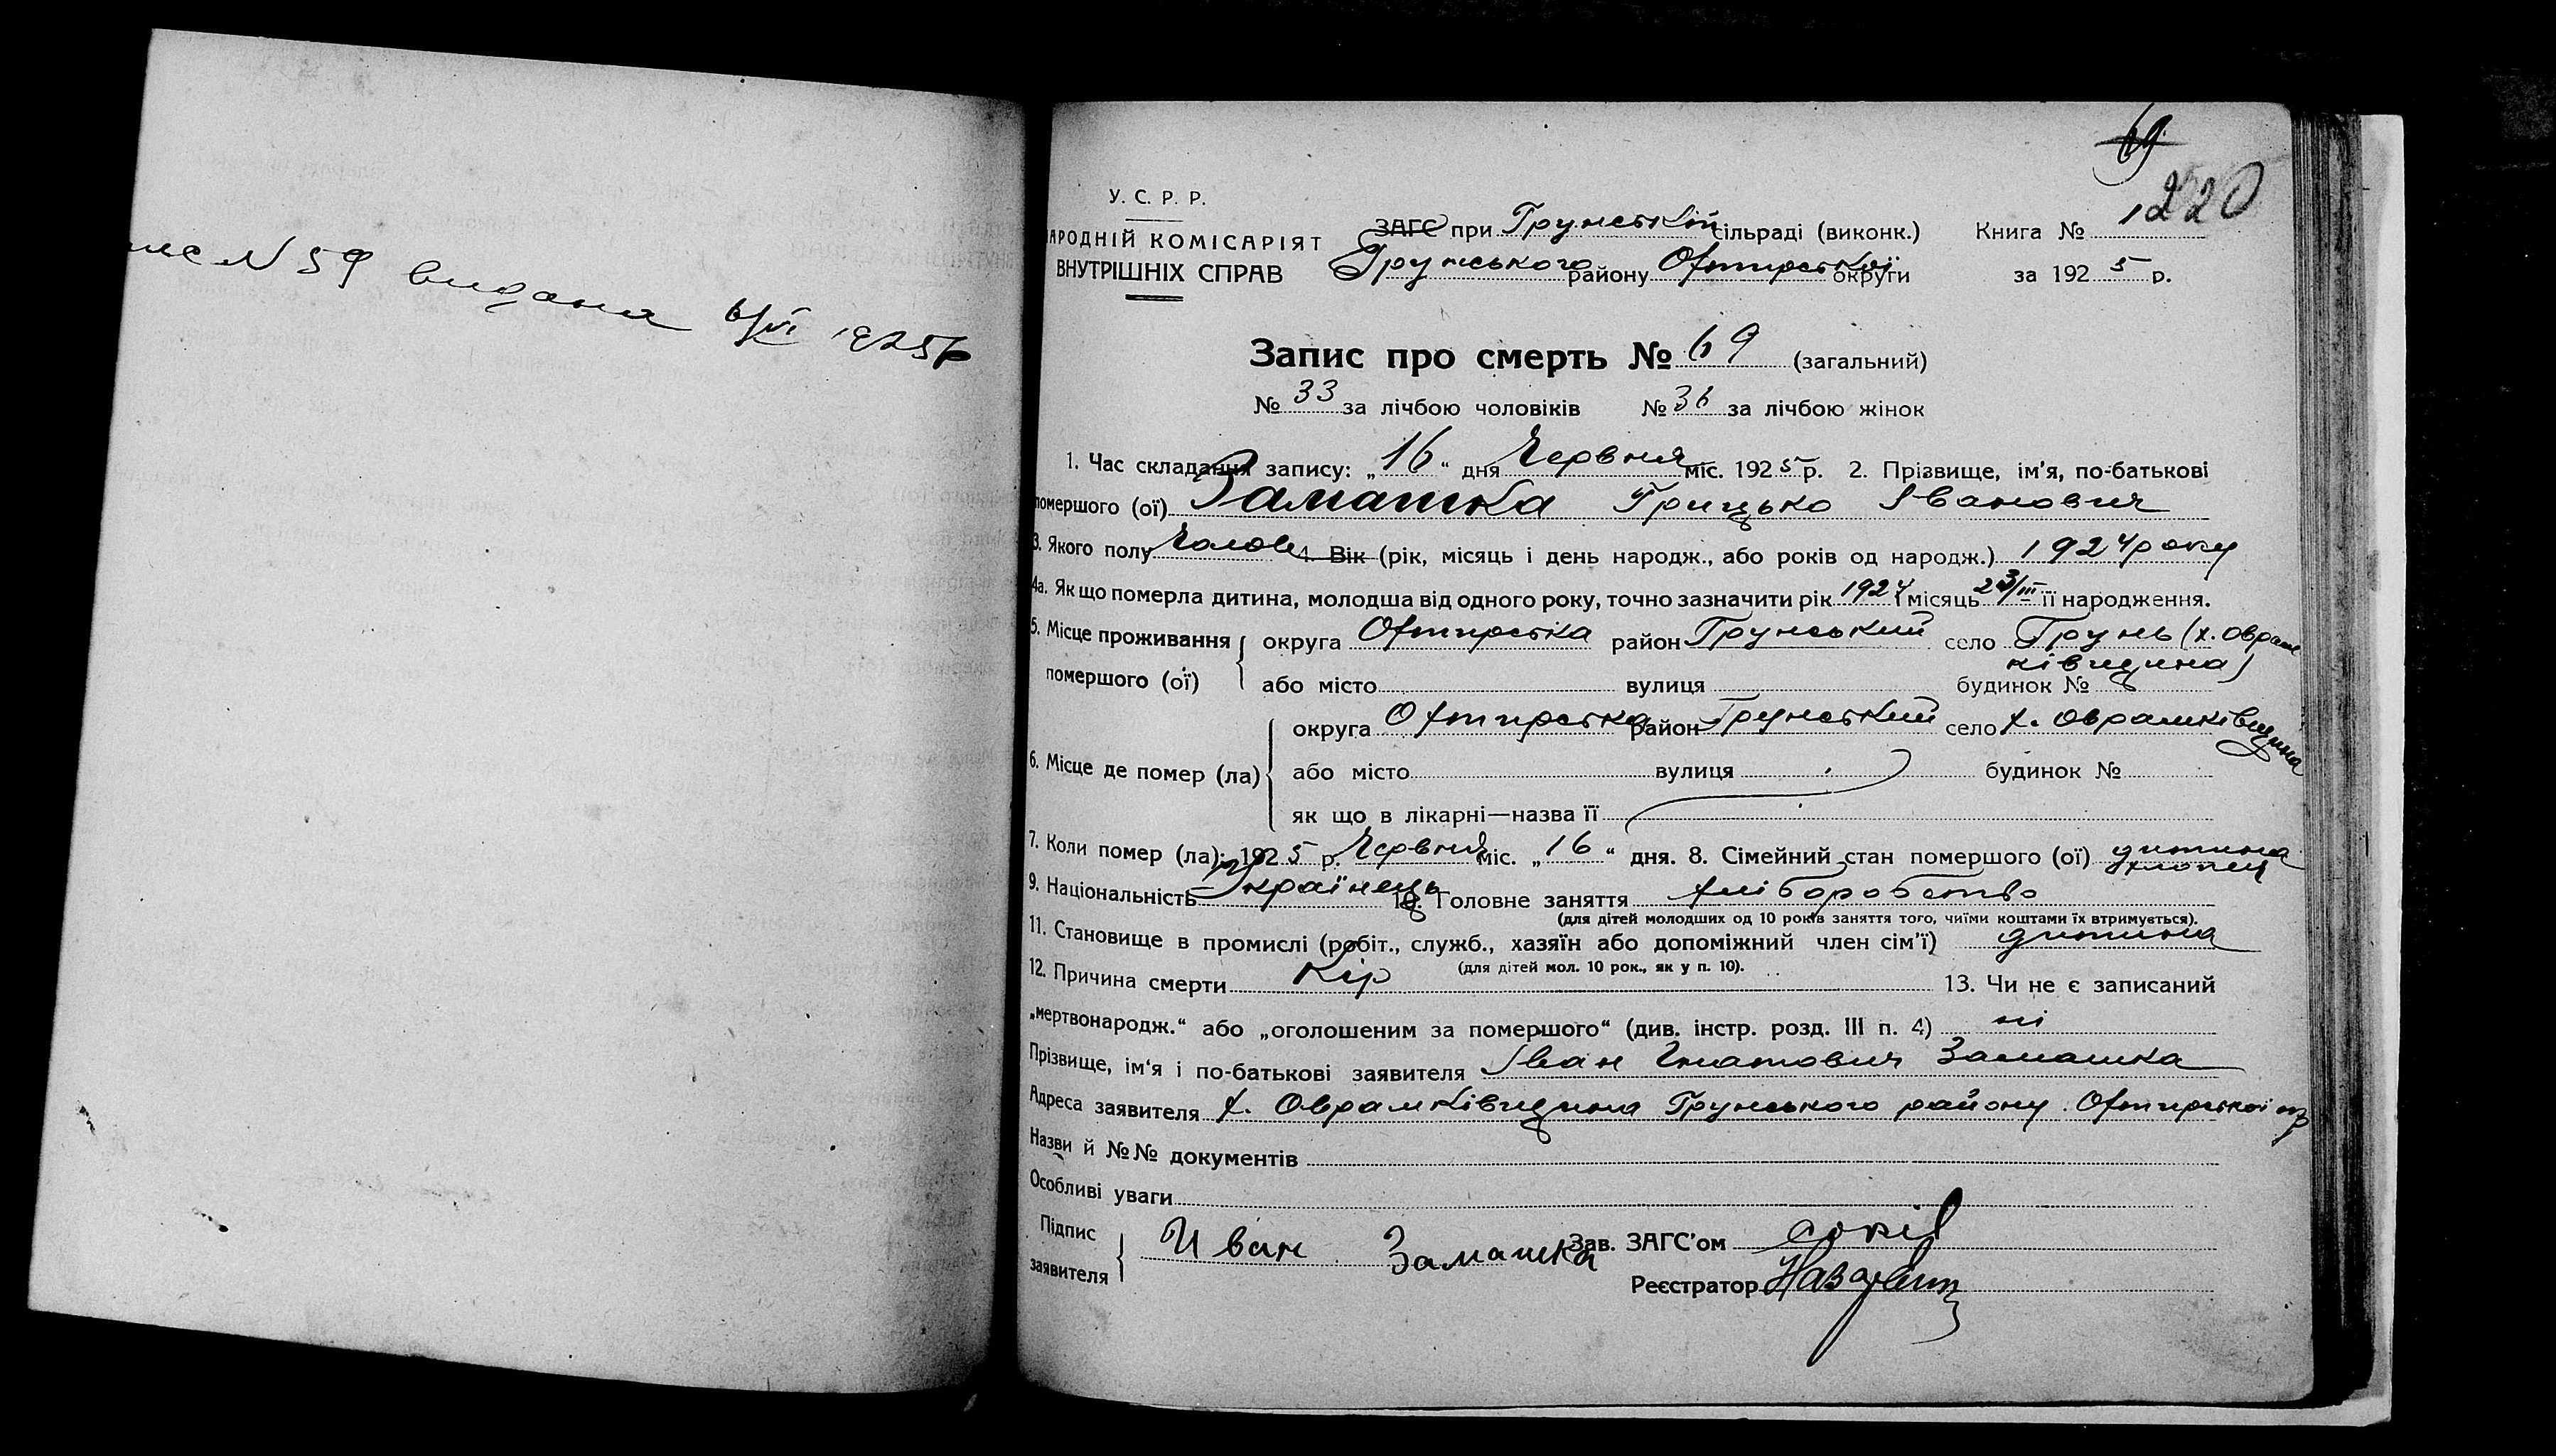 № 59 видана 6/VI 1925р
69
220
У. С. Р. Р.
НАРОДНІЙ КОМІСАРІЯТ
ВНУТРІШНІХ СПРАВ
ЗАГС при Грунській сільраді (виконк.) Книга № 1
Грунського району Охтирської округи за 1925 р.
Запис про смерть № 69 (загальний)
№ 33 за лічбою чоловіків № 36 за лічбою жінок
1. Час складання запису: „16“ дня Червня міс. 1925 р. 2. Прізвище, ім’я, по-батькові
помершого (ої) Замашка Грицько Іванович
3. Якого полу Чолов 4. Вік (рік, місяць і день народж., або років од народж.) 1924 року
4а. Як що померла дитина, молодша від одного року, точно зазначити рік 1924 місяць 23/III її народження.
5. Місце проживання помершого (ої) округа Охтирська район Грунський село Грунь (х. Оврам
ківщина)
або місто вулиця будинок №
6. Місце де помер (ла) округа Охтирська район Грунський село х. Оврамківщина
або місто вулиця будинок №
як що в лікарні—назва її
7. Коли помер (ла): 1925 р. Червня міс. „16“ дня. 8. Сімейний стан помершого (ої) дитина
хлопец
9. Національність Українець 10. Головне заняття хліборобство
(для дітей молодших од 10 років заняття того, чиїми коштами їх втримується).
11. Становище в промислі (робіт., служб., хазяїн або допоміжний член сім’ї) дитина
(для дітей мол. 10 рок., як у п. 10).
12. Причина смерти Кір 13. Чи не є записаний
„мертвонародж.“ або „оголошеним за помершого“ (див. інстр. розд. III п. 4) ні
Прізвище, ім’я і по-батькові заявителя Іван Гнатович Замашка
Адреса заявителя х. Оврамківщина Грунського району. Охтирської окр
Назви й №№ документів
Особливі уваги
Підпис заявителя Иван Замашка Зав. ЗАГС’ом
Реєстратор